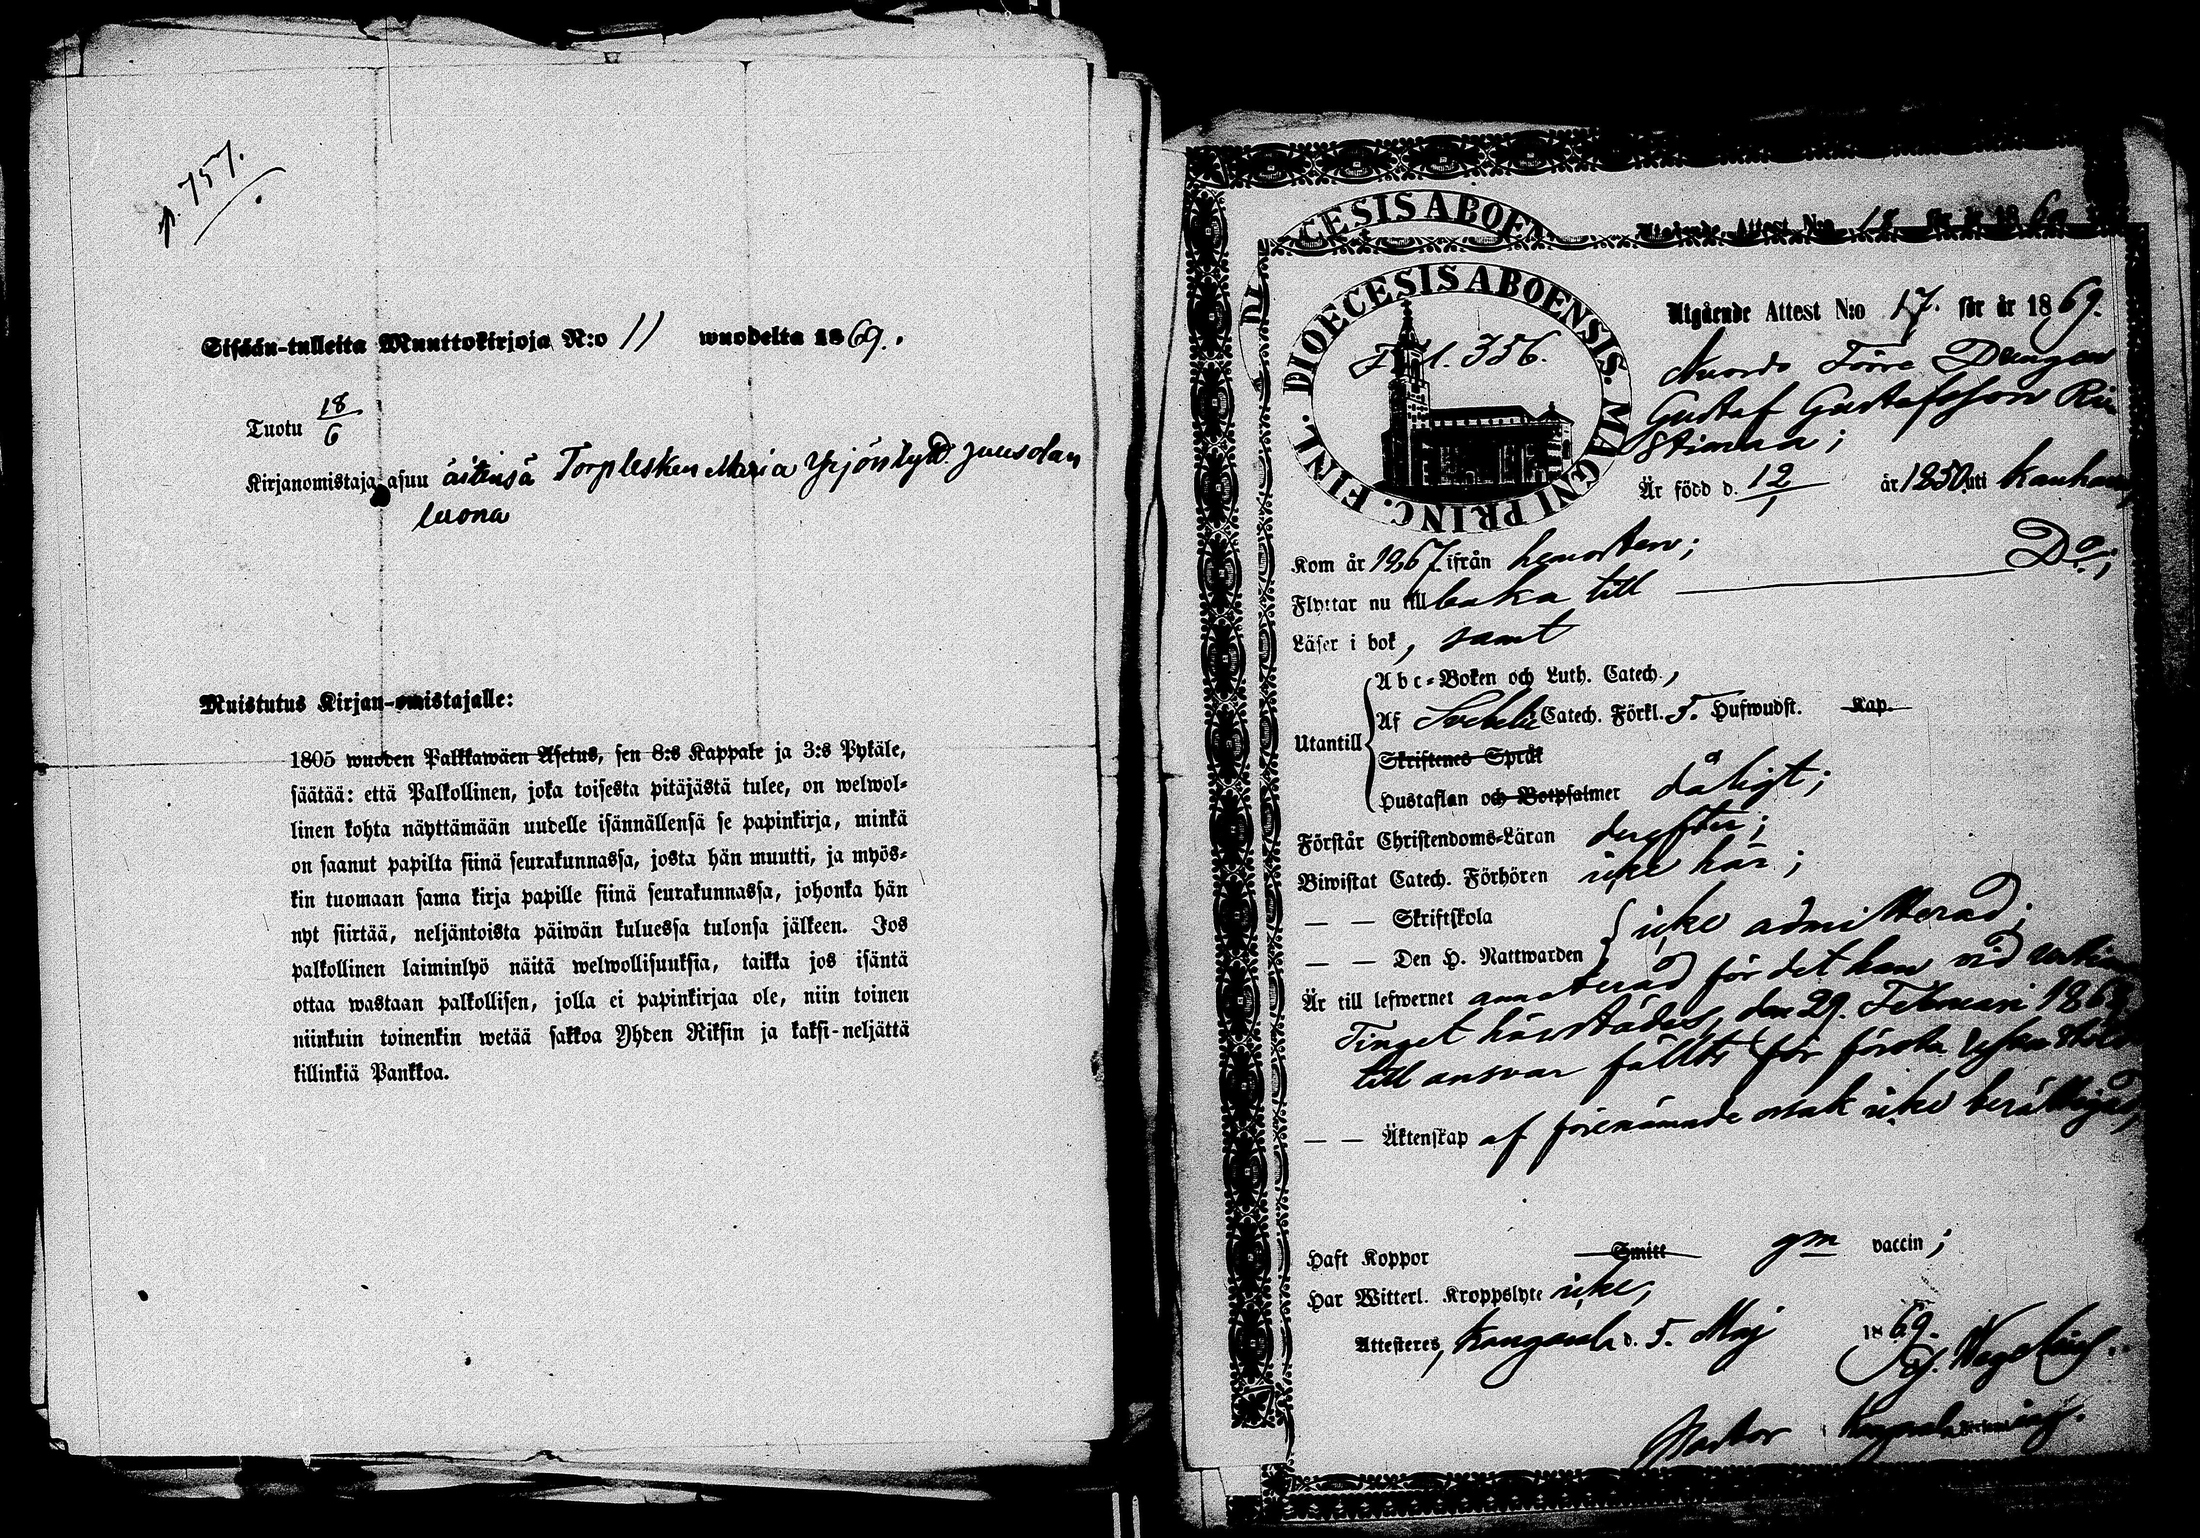 p. 757.
Sisään-tulleita Muuttokirjoja N:o 11 wuodelta 1869.
Tuotu 18/6
Kirjanomistaja asuu äitinsä Torplesken Maria Yrjöntytt. Juusolan
luona
Muistutus Kirjan-omistajalle:
1805 wuoden Palkkawäen Asetus, sen 8:s Kappale ja 3:s Pykäle,
säätää: että Palkollinen, joka toisesta pitäjästä tulee, on welwol-
linen kohta näyttämään uudelle isännällensä se papinkirja, minkä
on saanut papilta siinä seurakunnassa, josta hän muutti, ja myös-
kin tuomaan sama kirja papille siinä seurakunnassa, johonka hän
nyt siirtää, neljäntoista päiwän kuluessa tulonsa jälkeen. Jos
palkollinen laiminlyö näitä welwollisuuksia, taikka jos isäntä
ottaa wastaan palkollisen, jolla ei papinkirjaa ole, niin toinen
niinkuin toinenkin wetää sakkoa Yhden Riksin ja kaksi-neljättä
killinkiä Pankkoa.
CESIS ABOEN
Utgående Attest N:o 18 för år 186
DIOECESIS ABOENSIS. MAGNI PRINC. FINL.
Fol. 356.
Utgående Attest N:o 17. för år 1869.
Drengen
Gustaf Gustafsson
Är född d. 12/1 år 1850 uti
Kom år 1867 ifrån hemorten;
Flyttar nu till baka till Do;
Läser i bok, samt
Utantill
Abc-Boken och Luth. Catech.,
Af Svebelii Catech. Förkl. 5. Hufwudst. Kap.
Skriftenes Språk
Hustaflan och Botpsalmer dåligt;
Förstår Christendoms-Läran derefter;
Biwistat Catech. Förhören icke här;
— — Skriftskola
— — Den H. Nattwarden icke admitterad;
Är till lefwernet annoterad för det han vid
Tinget härstädes, den 29. Februari 186
till answar fällts för första
— — Äktenskap af förenämnde orsak icke berättigad,
Haft Koppor Smitt gm vaccin;
Har Witterl. Kroppslyte icke,
Attesteres, Kangasala d. 5. Maj 1869.
Pastor